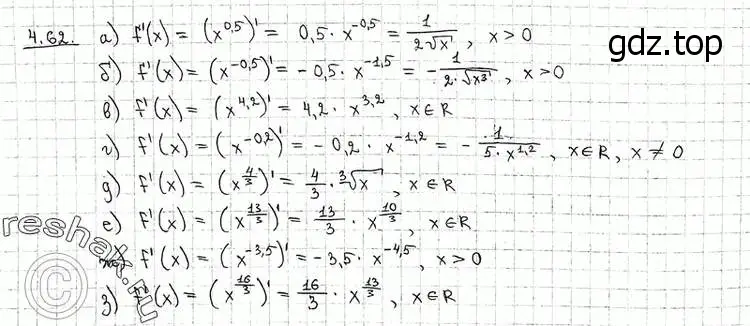 gdz.top
4.62. а) f'(x) = (x^0,5)' = 0,5 · x^-0,5 = 1/(2√x), x > 0
б) f'(x) = (x^-0,5)' = -0,5 · x^-1,5 = -1/(2·√x³), x > 0
в) f'(x) = (x^4,2)' = 4,2 · x^3,2, x ∈ R
г) f'(x) = (x^-0,2)' = -0,2 · x^-1,2 = -1/(5·x^1,2), x ∈ R, x ≠ 0
д) f'(x) = (x^4/3)' = 4/3 · ∛x, x ∈ R
е) f'(x) = (x^13/3)' = 13/3 · x^10/3, x ∈ R
ж) f'(x) = (x^-3,5)' = -3,5 · x^-4,5, x > 0
з) f'(x) = (x^16/3)' = 16/3 · x^13/3, x ∈ R
reshak.ru